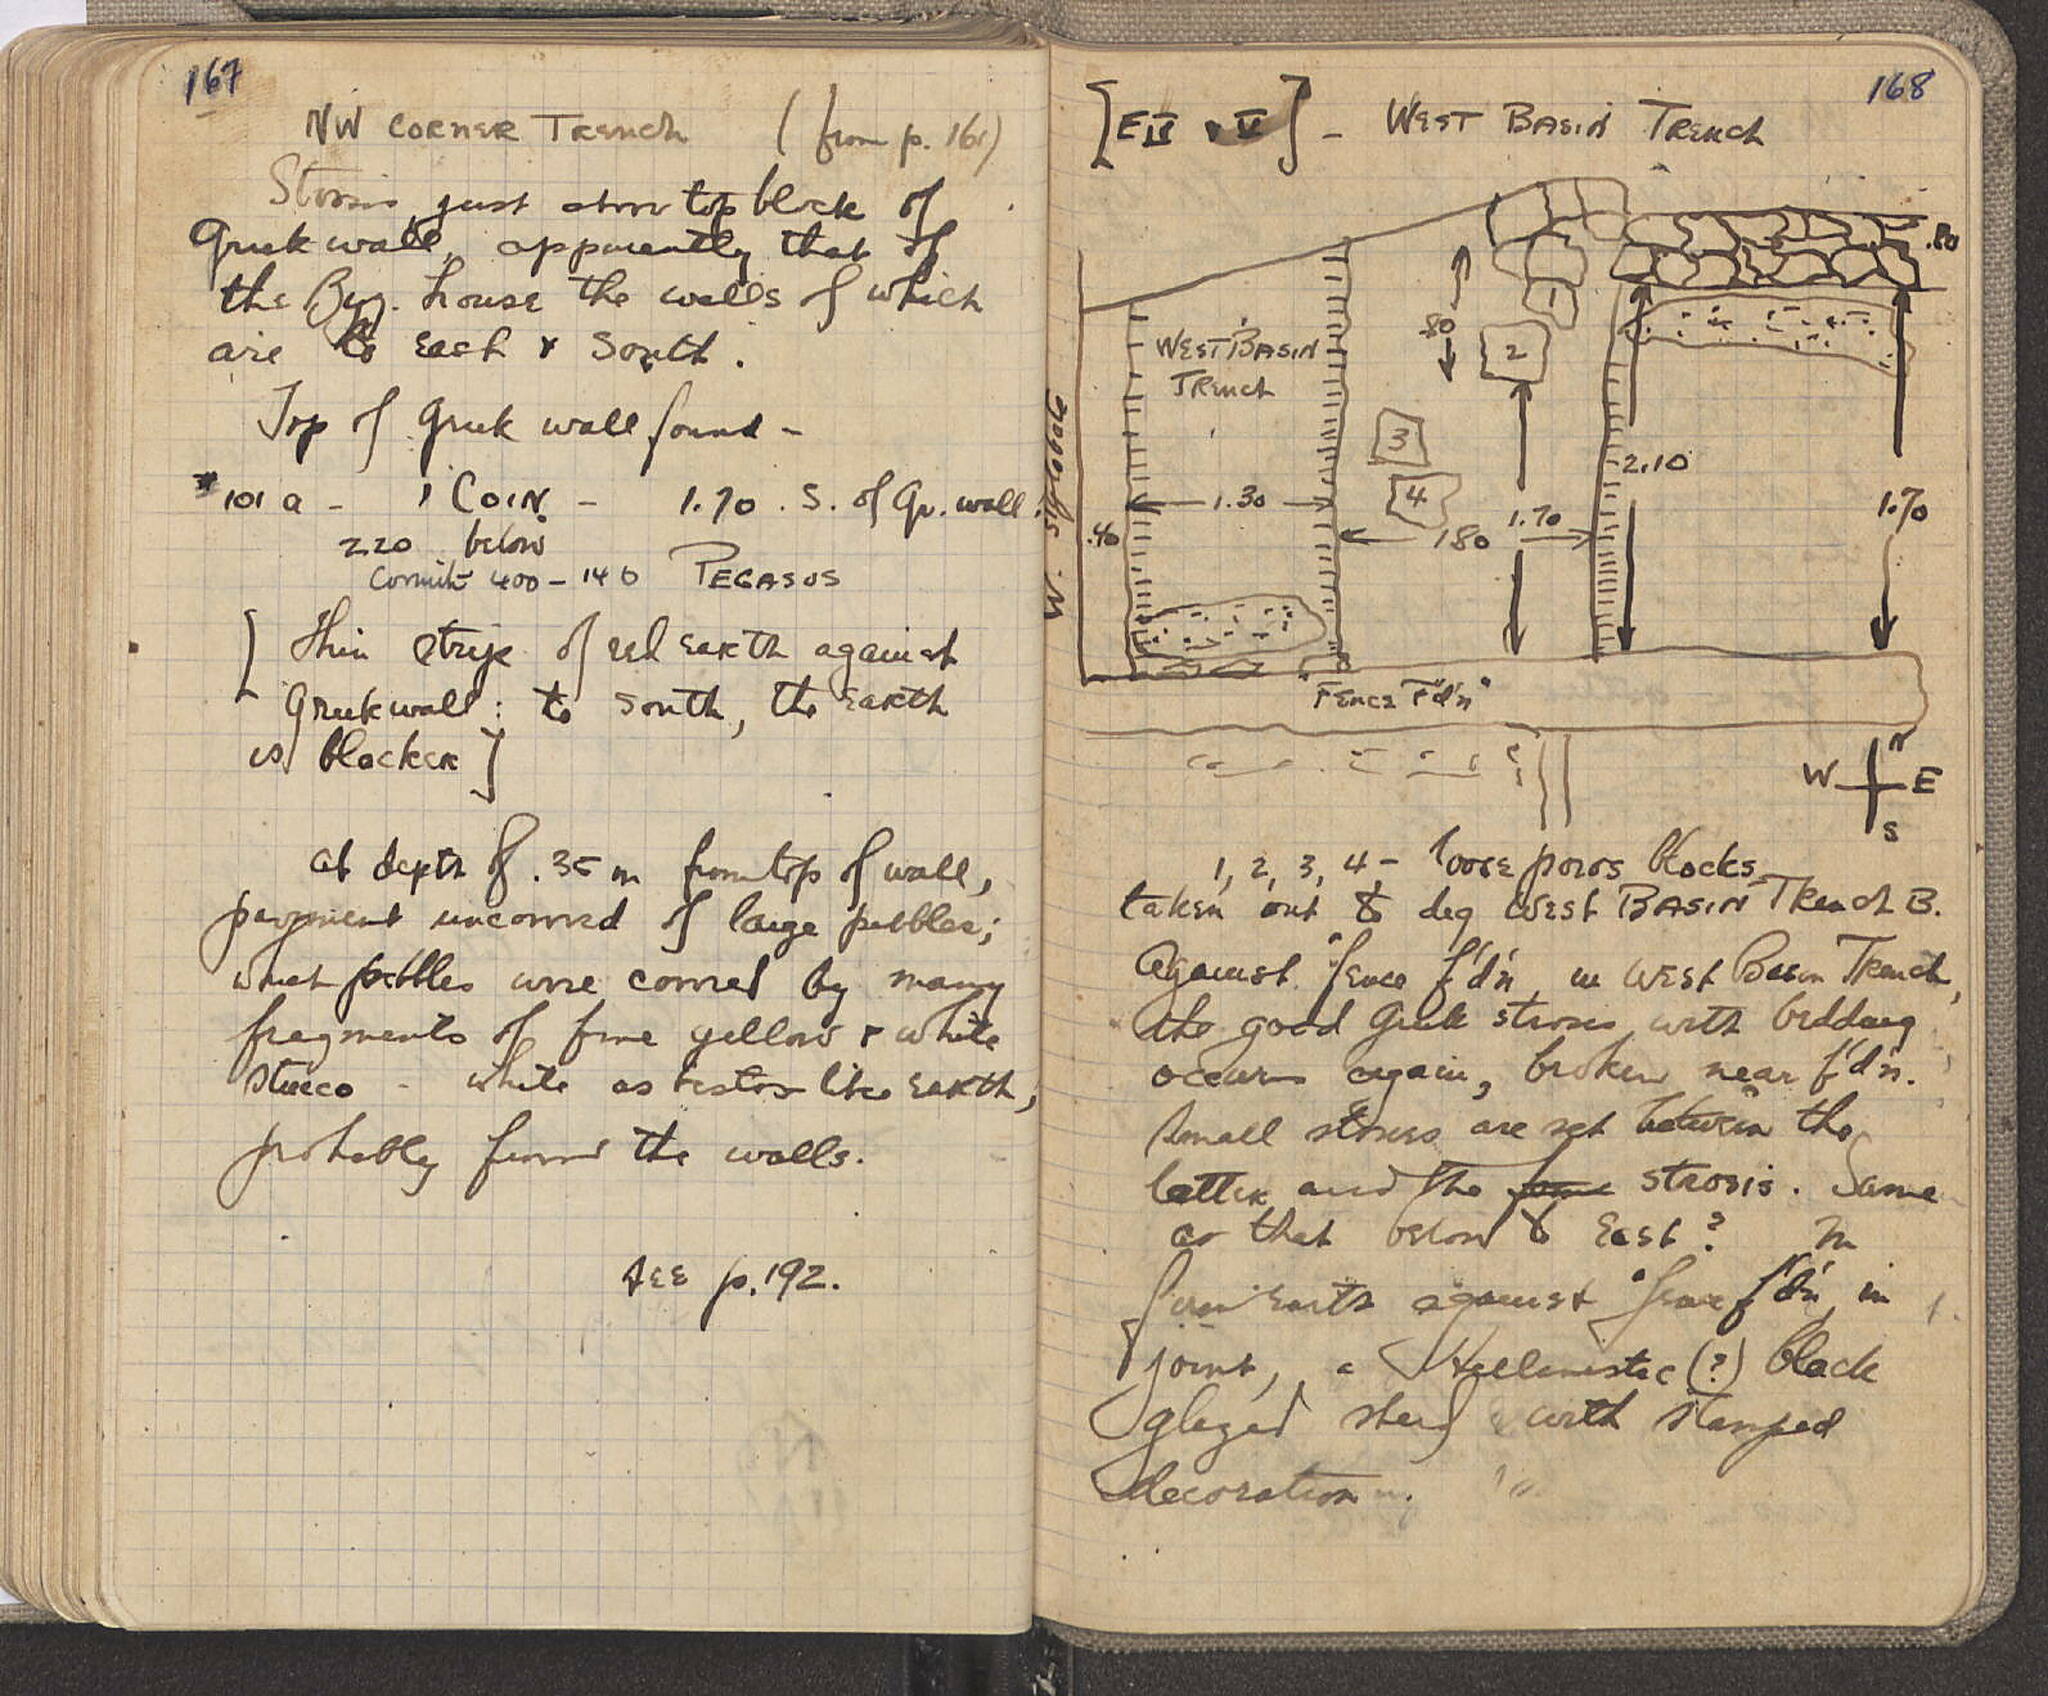 167
NW CORNER TRENCH (from p. 161)
Strosis just above top block of
Greek wall, apparently that of
the Byz. house the walls of which
are to East & South.
Top of Greek wall found -
*101 a - 1 COIN - 1.70 S. of Gr. wall
2.20 below
Corinth 400-146 PEGASUS
[Thin strip of red earth against
Greek wall: to south, the earth
is blacker]
at depth of .35 m from top of wall,
pavement uncovered of large pebbles;
pebbles were covered by many
fragments of fine yellow & white
stucco - white asbestos like earth,
probably from the walls.
SEE p. 192.
168
[E IV & V] - WEST BASIN TRENCH
.80
1
WEST BASIN
TRENCH
.80
2
W. Stylobate
3
2.10
4
1.30
1.70
1.70
.40
1.80
"Fence F'd'n"
N
W E
S
1, 2, 3, 4 - loose poros blocks
taken out to dig WEST BASIN TRENCH B.
Against "fence f'd'n in WEST Basin Trench,
the good Greek strosis with bedding
occurs again, broken near f'd'n.
Small stones are set between the
latter and the strosis. Same
as that below to East? In
firm earth against "fence f'd'n, in
joint, a Hellenistic (?) black
glazed sherd with stamped
decoration.